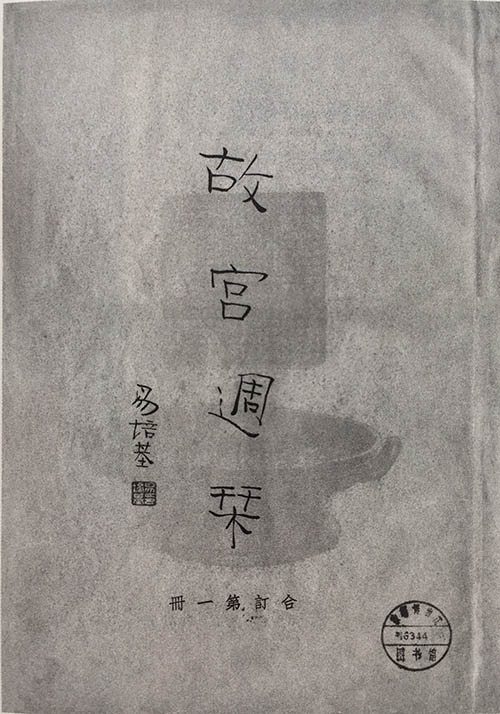 故宮週栞
易培基
合訂第一冊
6344
图书馆